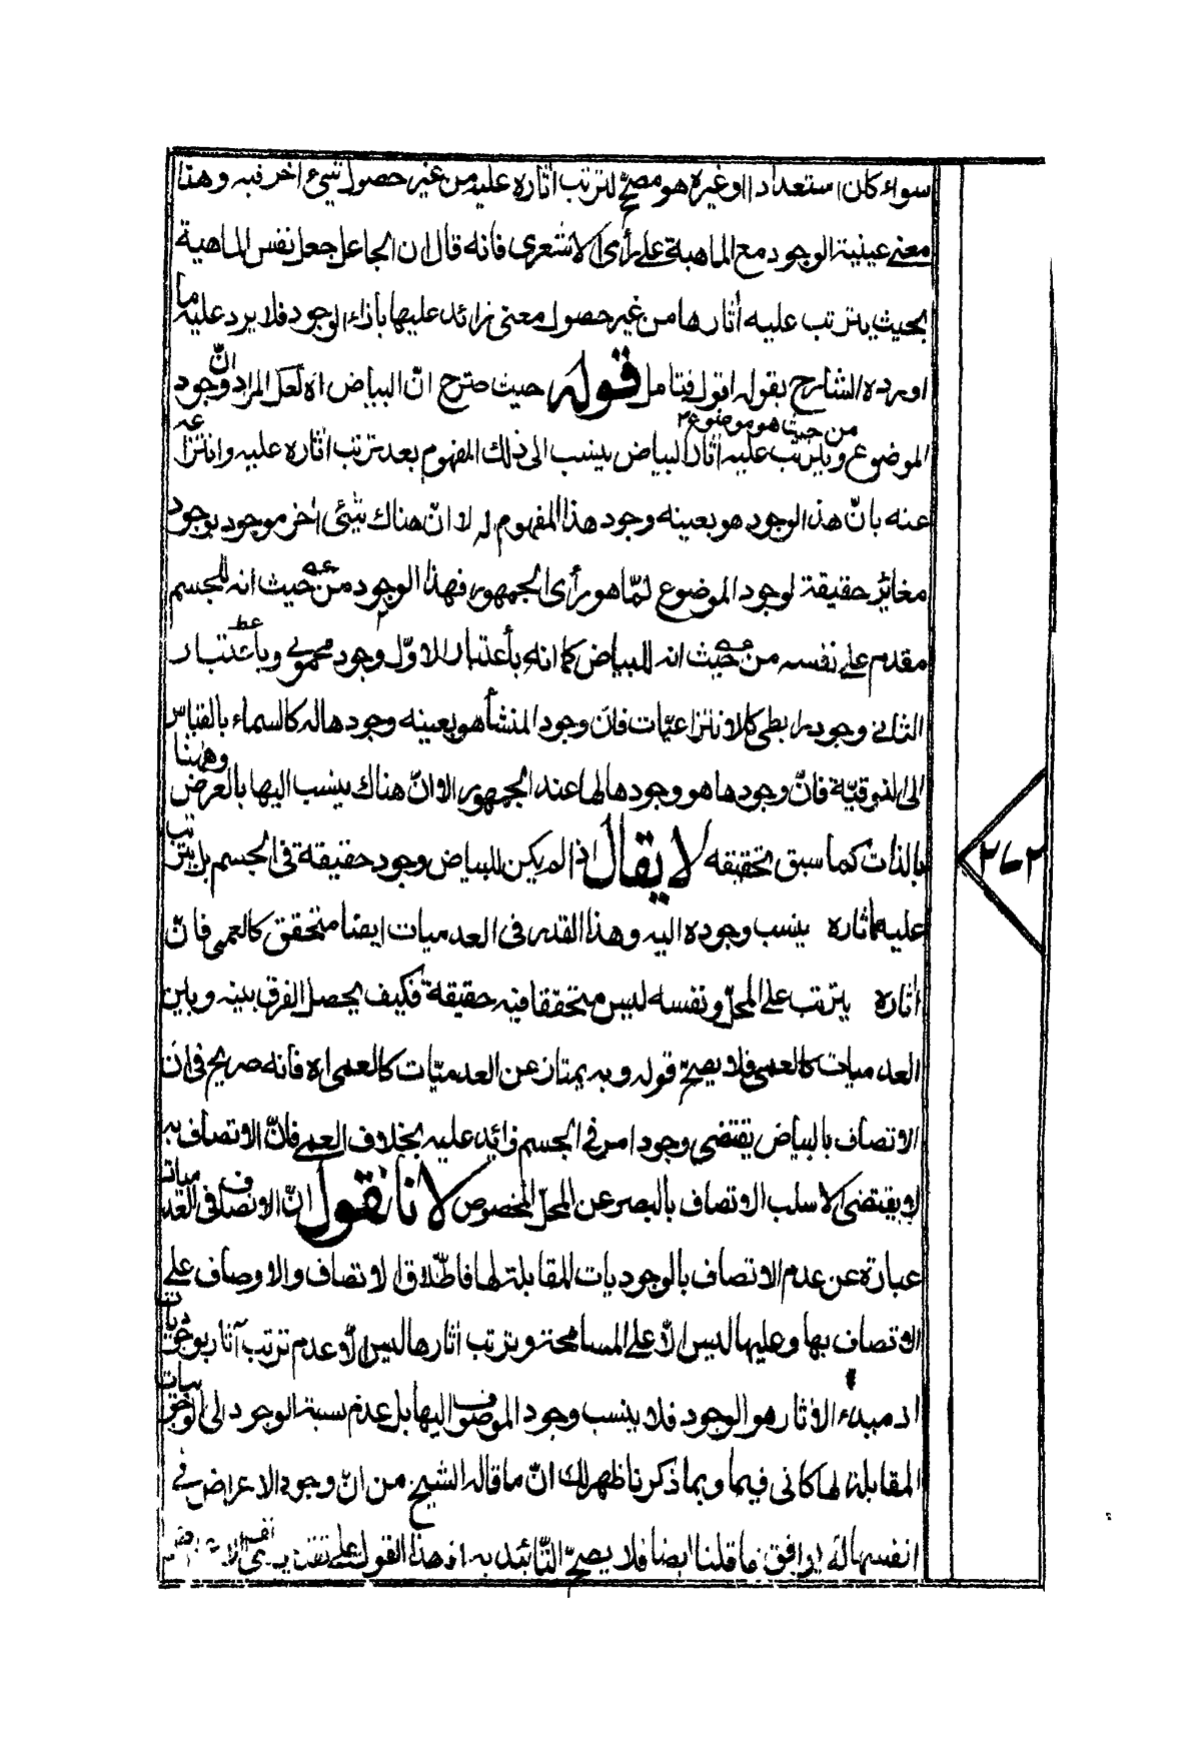 سواء كان استعدادا اوغيره هو مصحح لترتب اثاره عليه من غير حصول شيء اخر فيه وهذا
معنى عينية الوجود مع الماهية على رأى الاشعرى فانه قال ان الجاعل جعل نفس الماهية
بحيث يترتب عليه أثارها من غير حصول معنى زائد عليها بأزاء الوجود فلا يرد عليه ما
اورده الشارح بقوله اقول فتامل قوله حيث صرح انّ البياض اه لعل المراد انّ وجود
الموضوع من حيث هو موضوع ويترتب عليه أثار البياض ينسب الى ذلك المفهوم بعد ترتب أثاره عليه وانتزاعه
عنه بانّ هذا الوجود هو بعينه وجود هذا المفهوم له لا انّ هناك شئ أخر موجود بوجود
مغائر حقيقة لوجود الموضوع كما هو رأى الجمهور فهذا الوجود من حيث انه للجسم
مقدم على نفسه من حيث انه للبياض كما انه بأعتبار الاوّل وجود محمولى وبأعتبار
الثانى وجود رابطى كالانتزاعيّات فانّ وجود المنشأ هو بعينه وجود هاله كالسماء بالقياس
الى الفوقيّة فانّ وجودها هو وجودها لها عند الجمهور الا انّ هناك ينسب اليها بالعرض وههنا
بالذات كما سبق تحقيقه لا يقال اذا لم يكن للبياض وجود حقيقة فى الجسم بل يترتب
عليه أثاره ينسب وجوده اليه وهذا القدر فى العدميات ايضا متحقق كالعمى فانّ
أثاره يترتب على المحل ونفسه ليس متحققا فيه حقيقة فكيف يحصل الفرق بينه وبين
العدميات كالعمى فلا يصحّ قوله وبه يمتاز عن العدميّات كالعمى اه فانه صريح فى انّ
الاتصاف بالبياض يقتضى وجود امر فى الجسم زائد عليه بخلاف العمى فانّ الاتصاف به
لا يقتضى الا سلب الاتصاف بالبصر عن المحل المخصوص لانا نقول انّ الاتصاف فى العدميات
عبارة عن عدم الاتصاف بالوجوديات المقابلة لها فاطلاق الاتصاف والاوصاف على
الاتصاف بها وعليها ليس الّا على المسامحة وترتب اثارها ليس الّا عدم ترتب آثار بوجوديات
اذ مبدء الاثار هو الوجود فلا ينسب وجود الموصوف اليها بل عدم نسبة الوجود الى الوجوديات
المقابلة لها كانى فيما وبما ذكرنا ظهر لك انّ ما قاله الشيخ من انّ وجود الاعراض فى
انفسها اه يوافق ما قلنا ايضا فلا يصحّ التّائيد به اذ هذا القول على
٢٧٢